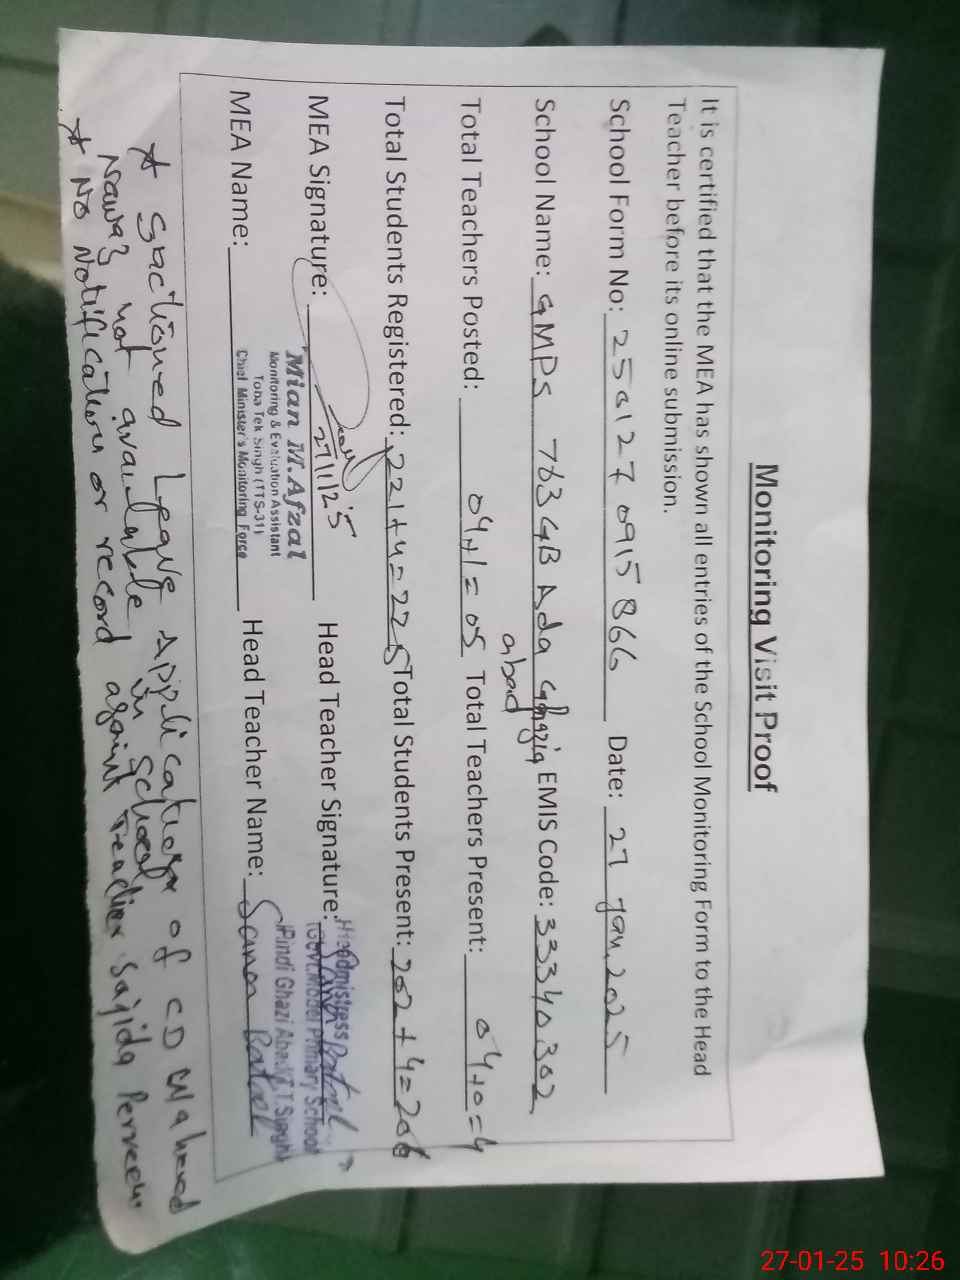 Monitoring Visit Proof
It is certified that the MEA has shown all entries of the School Monitoring Form to the Head
Teacher before its online submission.
School Form No: 250127 0915866 Date: 27 Jan, 2025
School Name: GMPS 763 GB Ada Ghazia abad EMIS Code: 33340302
Total Teachers Posted: 04+1=05 Total Teachers Present: 04+0=4
Total Students Registered: 221+4=225 Total Students Present: 202+4=206
MEA Signature: 27/1/25 Head Teacher Signature:
Mian M.Afzal
Monitoring & Evaluation Assistant
Toba Tek Singh (TTS-31)
Chief Minister's Monitoring Force
Headmistress
Govt.Model Primary School
Pindi Ghazi Abad T.T.Singh
MEA Name: Head Teacher Name: Saman Batool
* Sactioned Leave application of CD Waheed
Nawaz not available in School
* No Notification or record against Teacher Sajida Perveen
27-01-25 10:26